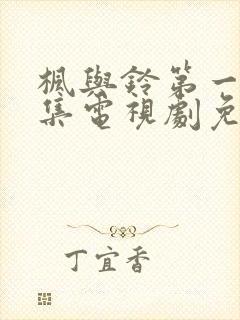 楓與鈴第一
集電視劇免
丁宜香